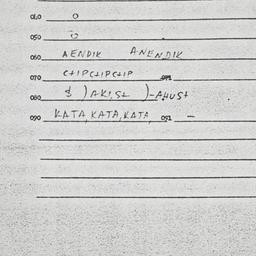 040 0
050 0
060 AENDIK ANENDIK
070 CHIPCHIPCHIP 071
080 & )AKISt )-AHUSt
090 KATA, KATA, KATA, 091 -